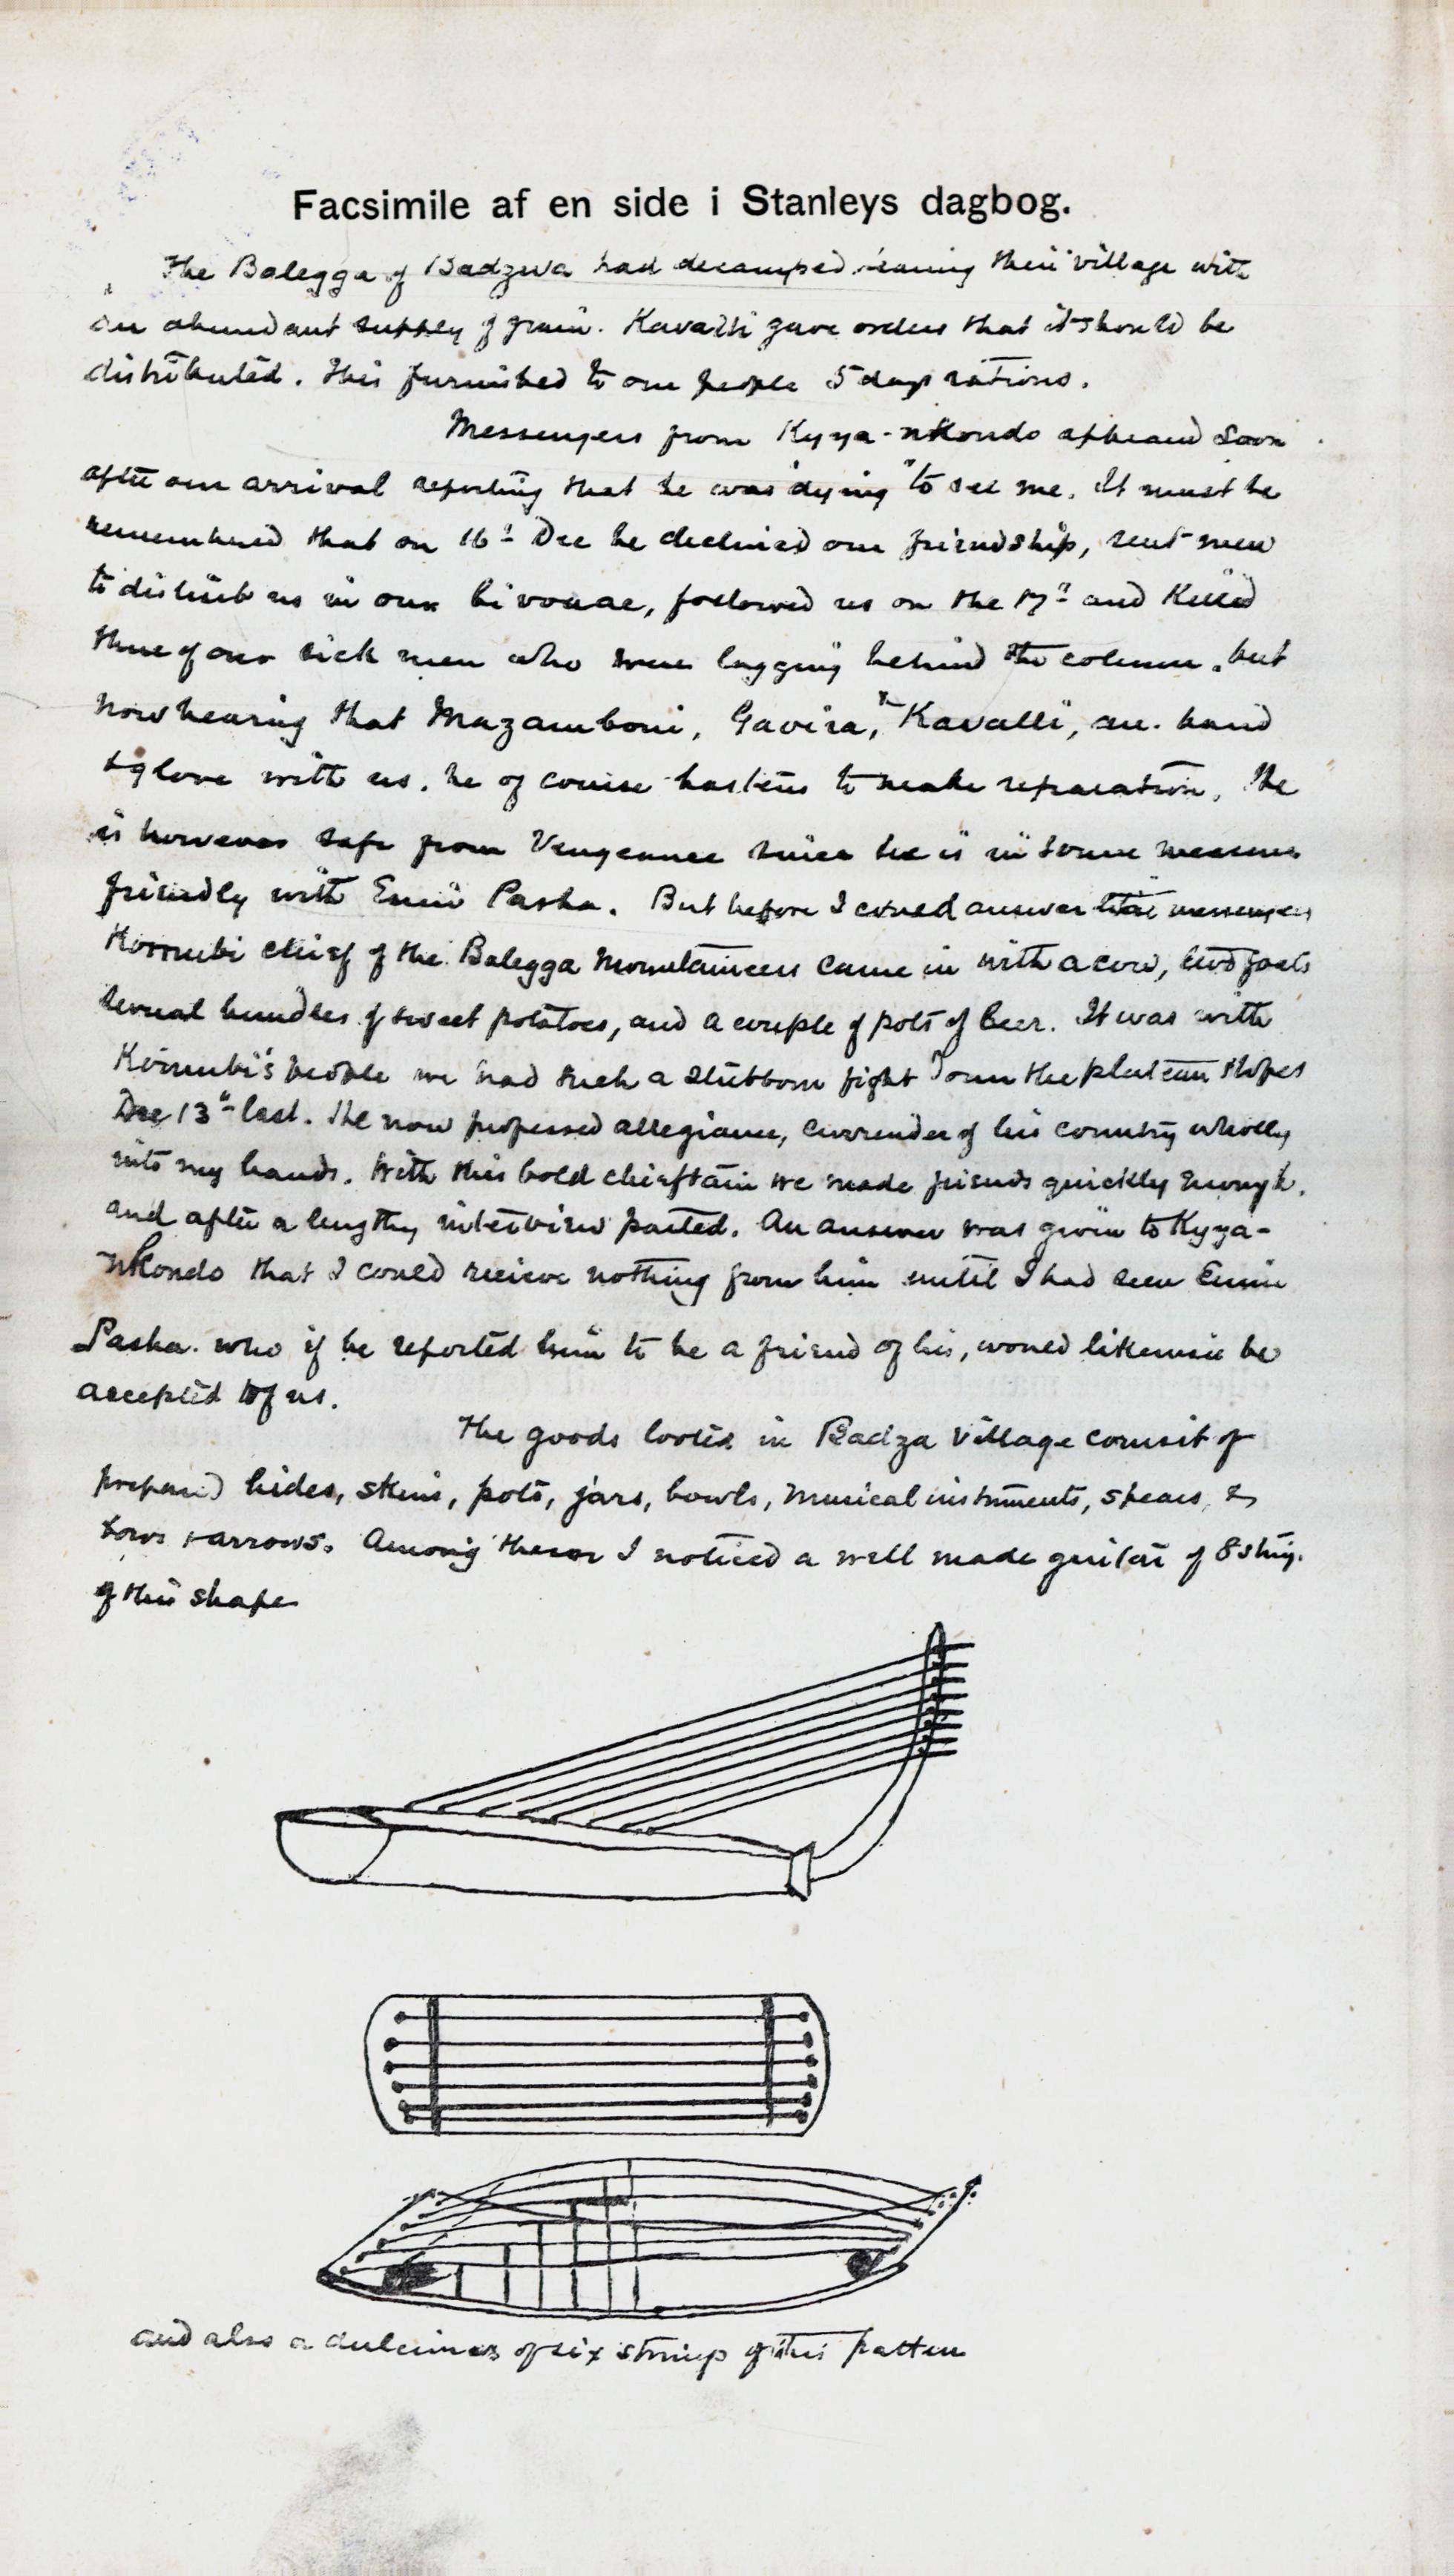 Facsimile af en side i Stanleys dagbog.
The Balegga of Badzwa had decamped leaving their village with
an abundant supply of grain. Kavalli gave orders that it should be
distributed. This furnished to our people 5 days rations.
Messengers from Kyya-nkondo appeared soon
after our arrival reporting that he was "dying" to see me. It must be
remembered that on 16th Dec he declined our friendship, sent men
to disturb us in our bivouac, followed us on the 17th and killed
three of our sick men who were lagging behind the column. but
now hearing that Mazamboni, Gavira, & Kavalli, are hand
& glove with us. he of course hastens to make reparation. He
is however safe from Vengeance since he is in some measure
friendly with Emin Pasha. But before I could answer the messengers
Komubi chief of the Balegga Mountaineers came in with a cow, two goats
several bundles of sweet potatoes, and a couple of pots of beer. It was with
Komubi's people we had such a stubborn fight on the plateau slopes
Dec 13th last. He now professed allegiance, surrender of his country wholly
into my hands. With this bold chieftain we made friends quickly enough.
and after a lengthy interview parted. An answer was given to Kyya-
nkondo that I could recieve nothing from him until I had seen Emin
Pasha. who if he reported him to be a friend of his, would likewise be
accepted of us.
The goods looted in Badza Village consist of
prepared hides, skins, pots, jars, bowls, musical instruments, spears, &
bows & arrows. Among these I noticed a well made guitar of 8 string.
of this shape
and also a dulcimer of six strings of this pattern